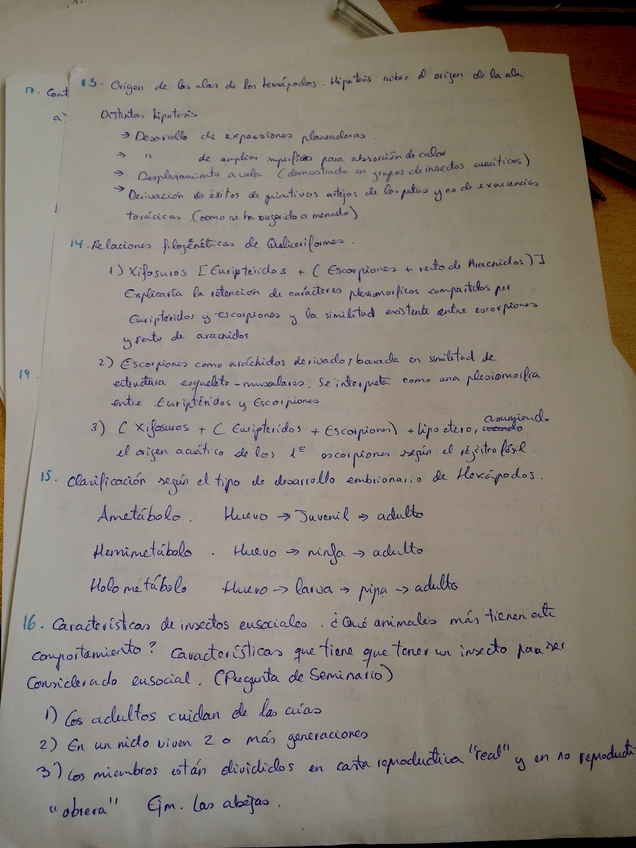 13. Origen de las alas de los hexápodos. Hipótesis sobre el origen de la ala
Distintas hipótesis
→ Desarrollo de expansiones planeadoras.
→ " de amplias superficies para absorción de calor
→ Desplazamiento a vela. (demostrado en grupos de insectos acuáticos)
→ Derivación de éxitos de primitivos artejos de las patas y no de excrecencias
torácicas (como se ha sugerido a menudo)
14. Relaciones filogenéticas de Queliceriformes.
1) Xifosuros [Euriptéridos + (Escorpiones + resto de Arácnidos)]
Explicaría la retención de carácteres plesiomorficos compartidos por
Euripteridos y escorpiones y la similitud existente entre escorpiones
y resto de aracnidos
2) Escorpiones como arácnidos derivado, basada en similitud de
estructura esqueleto-musculares. Se interpreta como una plesiomorfía
entre Euriptéridos y Escorpiones
3) (Xifosuros + (Euripteridos + Escorpiones) + lipoctero, asumiendo
el origen acuático de los 1º escorpiones según el régistro fósil.
15. Clasificación según el tipo de desarrollo embrionario de Hexápodos.
Ametábolo. Huevo → Juvenil → adulto
Hemimetábolo. Huevo → ninfa → adulto
Holometábolo Huevo → larva → pupa → adulto
16. Características de insectos eusociales. ¿Qué animales más tienen este
comportamiento? Características que tiene que tener un insecto para ser
considerado eusocial. (Pregunta de Seminario)
1) Los adultos cuidan de las crías
2) En un nido viven 2 o más generaciones
3) Los miembros están divididos en casta reproductiva "real" y en no reproducti
"obrera" Ejm. Las abejas.
17. Cont
a)
19.